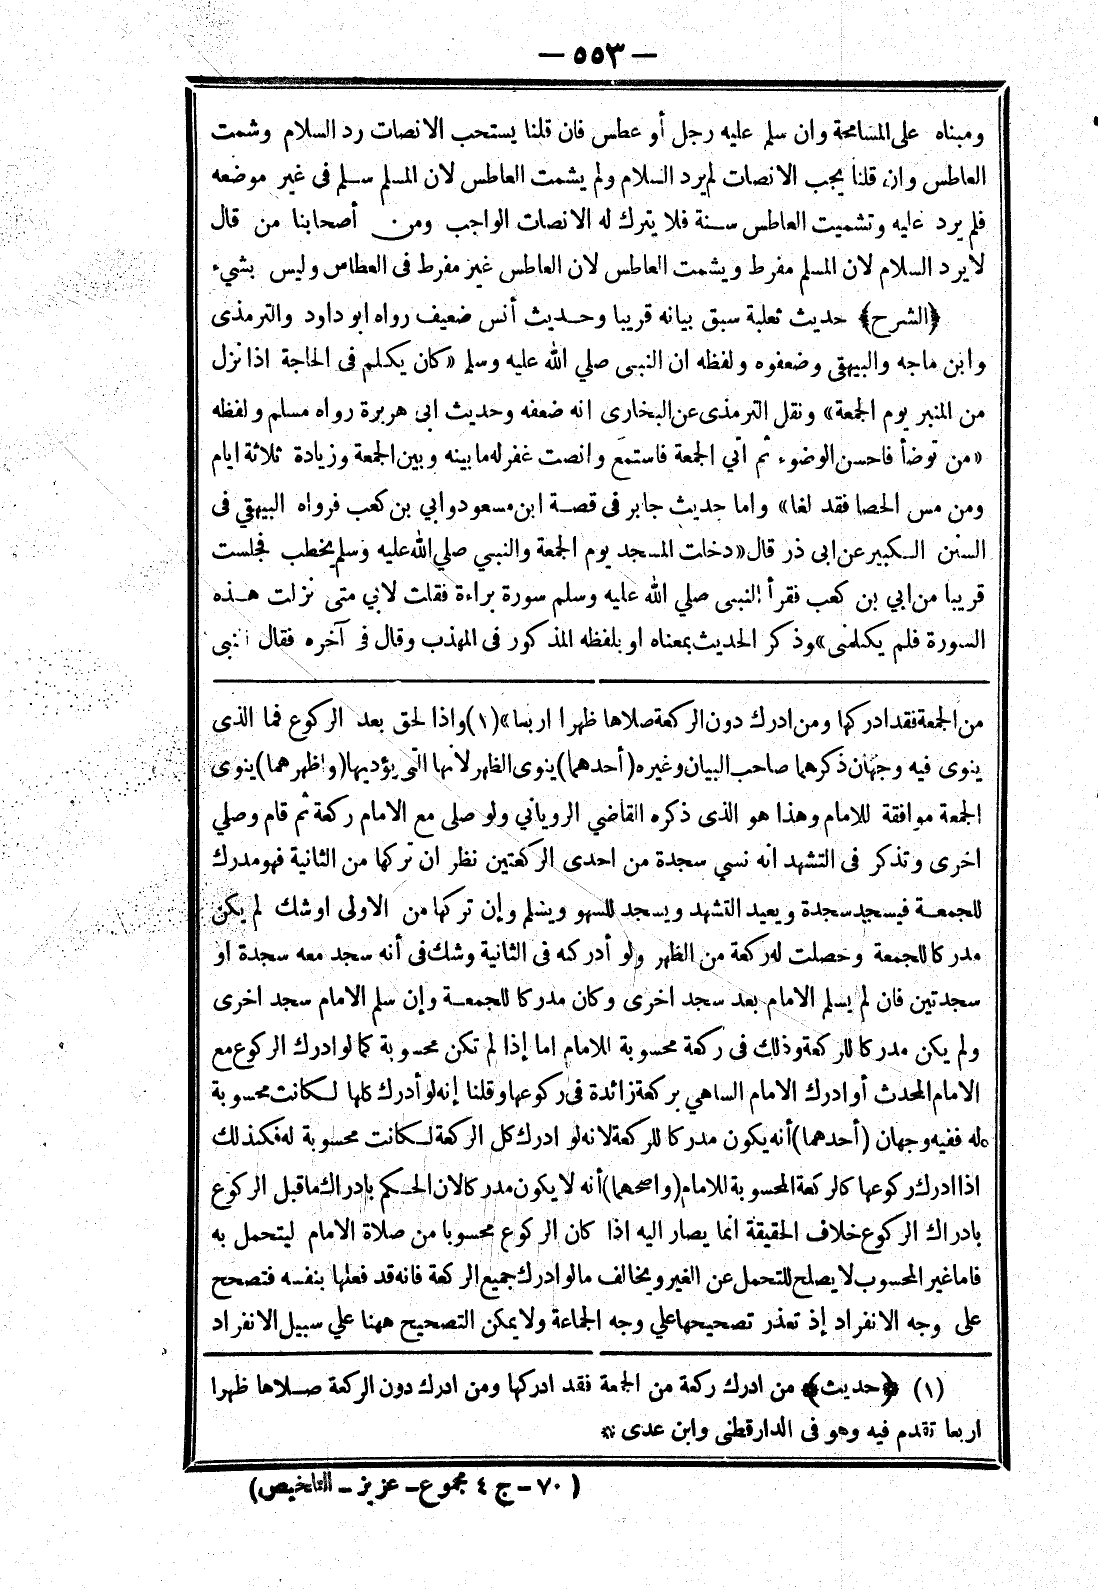 — ٥٥٣ —
ومبناه على المسامحة وان سلم عليه رجل أو عطس فان قلنا يستحب الانصات رد السلام وشمت
العاطس وان قلنا يجب الانصات لم يرد السلام ولم يشمت العاطس لان المسلم سلم فى غير موضعه
فلم يرد عليه وتشميت العاطس سنة فلا يترك له الانصات الواجب ومن أصحابنا من قال
لا يرد السلام لان المسلم مفرط ويشمت العاطس لان العاطس غير مفرط فى العطاس وليس بشيء
﴿الشرح﴾ حديث ثعلبة سبق بيانه قريبا وحديث أنس ضعيف رواه ابو داود والترمذى
وابن ماجه والبيهقى وضعفوه ولفظه ان النبى صلي الله عليه وسلم «كان يكلم فى الحاجة اذا نزل
من المنبر يوم الجمعة» ونقل الترمذى عن البخارى انه ضعفه وحديث ابى هريرة رواه مسلم ولفظه
«من توضأ فاحسن الوضوء ثم اتي الجمعة فاستمع وانصت غفر له ما بينه وبين الجمعة وزيادة ثلاثة ايام
ومن مس الحصا فقد لغا» واما حديث جابر فى قصة ابن مسعود وابي بن كعب فرواه البيهقي فى
السنن الكبير عن ابى ذر قال «دخلت المسجد يوم الجمعة والنبي صلي الله عليه وسلم يخطب فجلست
قريبا من ابي بن كعب فقرأ النبى صلي الله عليه وسلم سورة براءة فقلت لابي متى نزلت هذه
السورة فلم يكلمنى» وذكر الحديث بمعناه او بلفظه المذكور فى المهذب وقال فى آخره فقال النبى
من الجمعة فقد ادركها ومن ادرك دون الركعة صلاها ظهرا اربعا» (١) واذا لحق بعد الركوع فما الذى
ينوى فيه وجهان ذكرهما صاحب البيان وغيره (أحدهما) ينوى الظهر لانها التى يؤديها (واظهرهما) ينوى
الجمعة موافقة للامام وهذا هو الذى ذكره القاضي الروياني ولو صلى مع الامام ركعة ثم قام وصلي
اخرى وتذكر فى التشهد انه نسي سجدة من احدى الركعتين نظر ان تركها من الثانية فهو مدرك
للجمعة فيسجد سجدة ويعيد التشهد ويسجد للسهو ويسلم وإن تركها من الاولى او شك لم يكن
مدركا للجمعة وحصلت له ركعة من الظهر ولو أدركه فى الثانية وشك فى أنه سجد معه سجدة او
سجدتين فان لم يسلم الامام بعد سجد اخرى وكان مدركا للجمعة وإن سلم الامام سجد اخرى
ولم يكن مدركا للركعة وذلك فى ركعة محسوبة للامام اما إذا لم تكن محسوبة كما لو ادرك الركوع مع
الامام المحدث أو ادرك الامام الساهي بركعة زائدة فى ركوعها وقلنا إنه لو أدرك كلها لكانت محسوبة
له ففيه وجهان (أحدهما) أنه يكون مدركا للركعة لانه لو ادرك كل الركعة لكانت محسوبة له فكذلك
اذا ادرك ركوعها كالركعة المحسوبة للامام (واصحهما) أنه لا يكون مدركا لان الحكم بادراك ما قبل الركوع
بادراك الركوع خلاف الحقيقة انما يصار اليه اذا كان الركوع محسوبا من صلاة الامام ليتحمل به
فاما غير المحسوب لا يصلح للتحمل عن الغير ويخالف ما لو ادرك جميع الركعة فانه قد فعلها بنفسه فتصحح
على وجه الانفراد إذ تعذر تصحيحها علي وجه الجماعة ولا يمكن التصحيح ههنا علي سبيل الانفراد
(١) ﴿حديث﴾ من ادرك ركعة من الجمعة فقد ادركها ومن ادرك دون الركعة صلاها ظهرا
اربعا تقدم فيه وهو فى الدارقطنى وابن عدى *
(٧٠ - ج ٤ مجموع - عزيز - التلخيص)